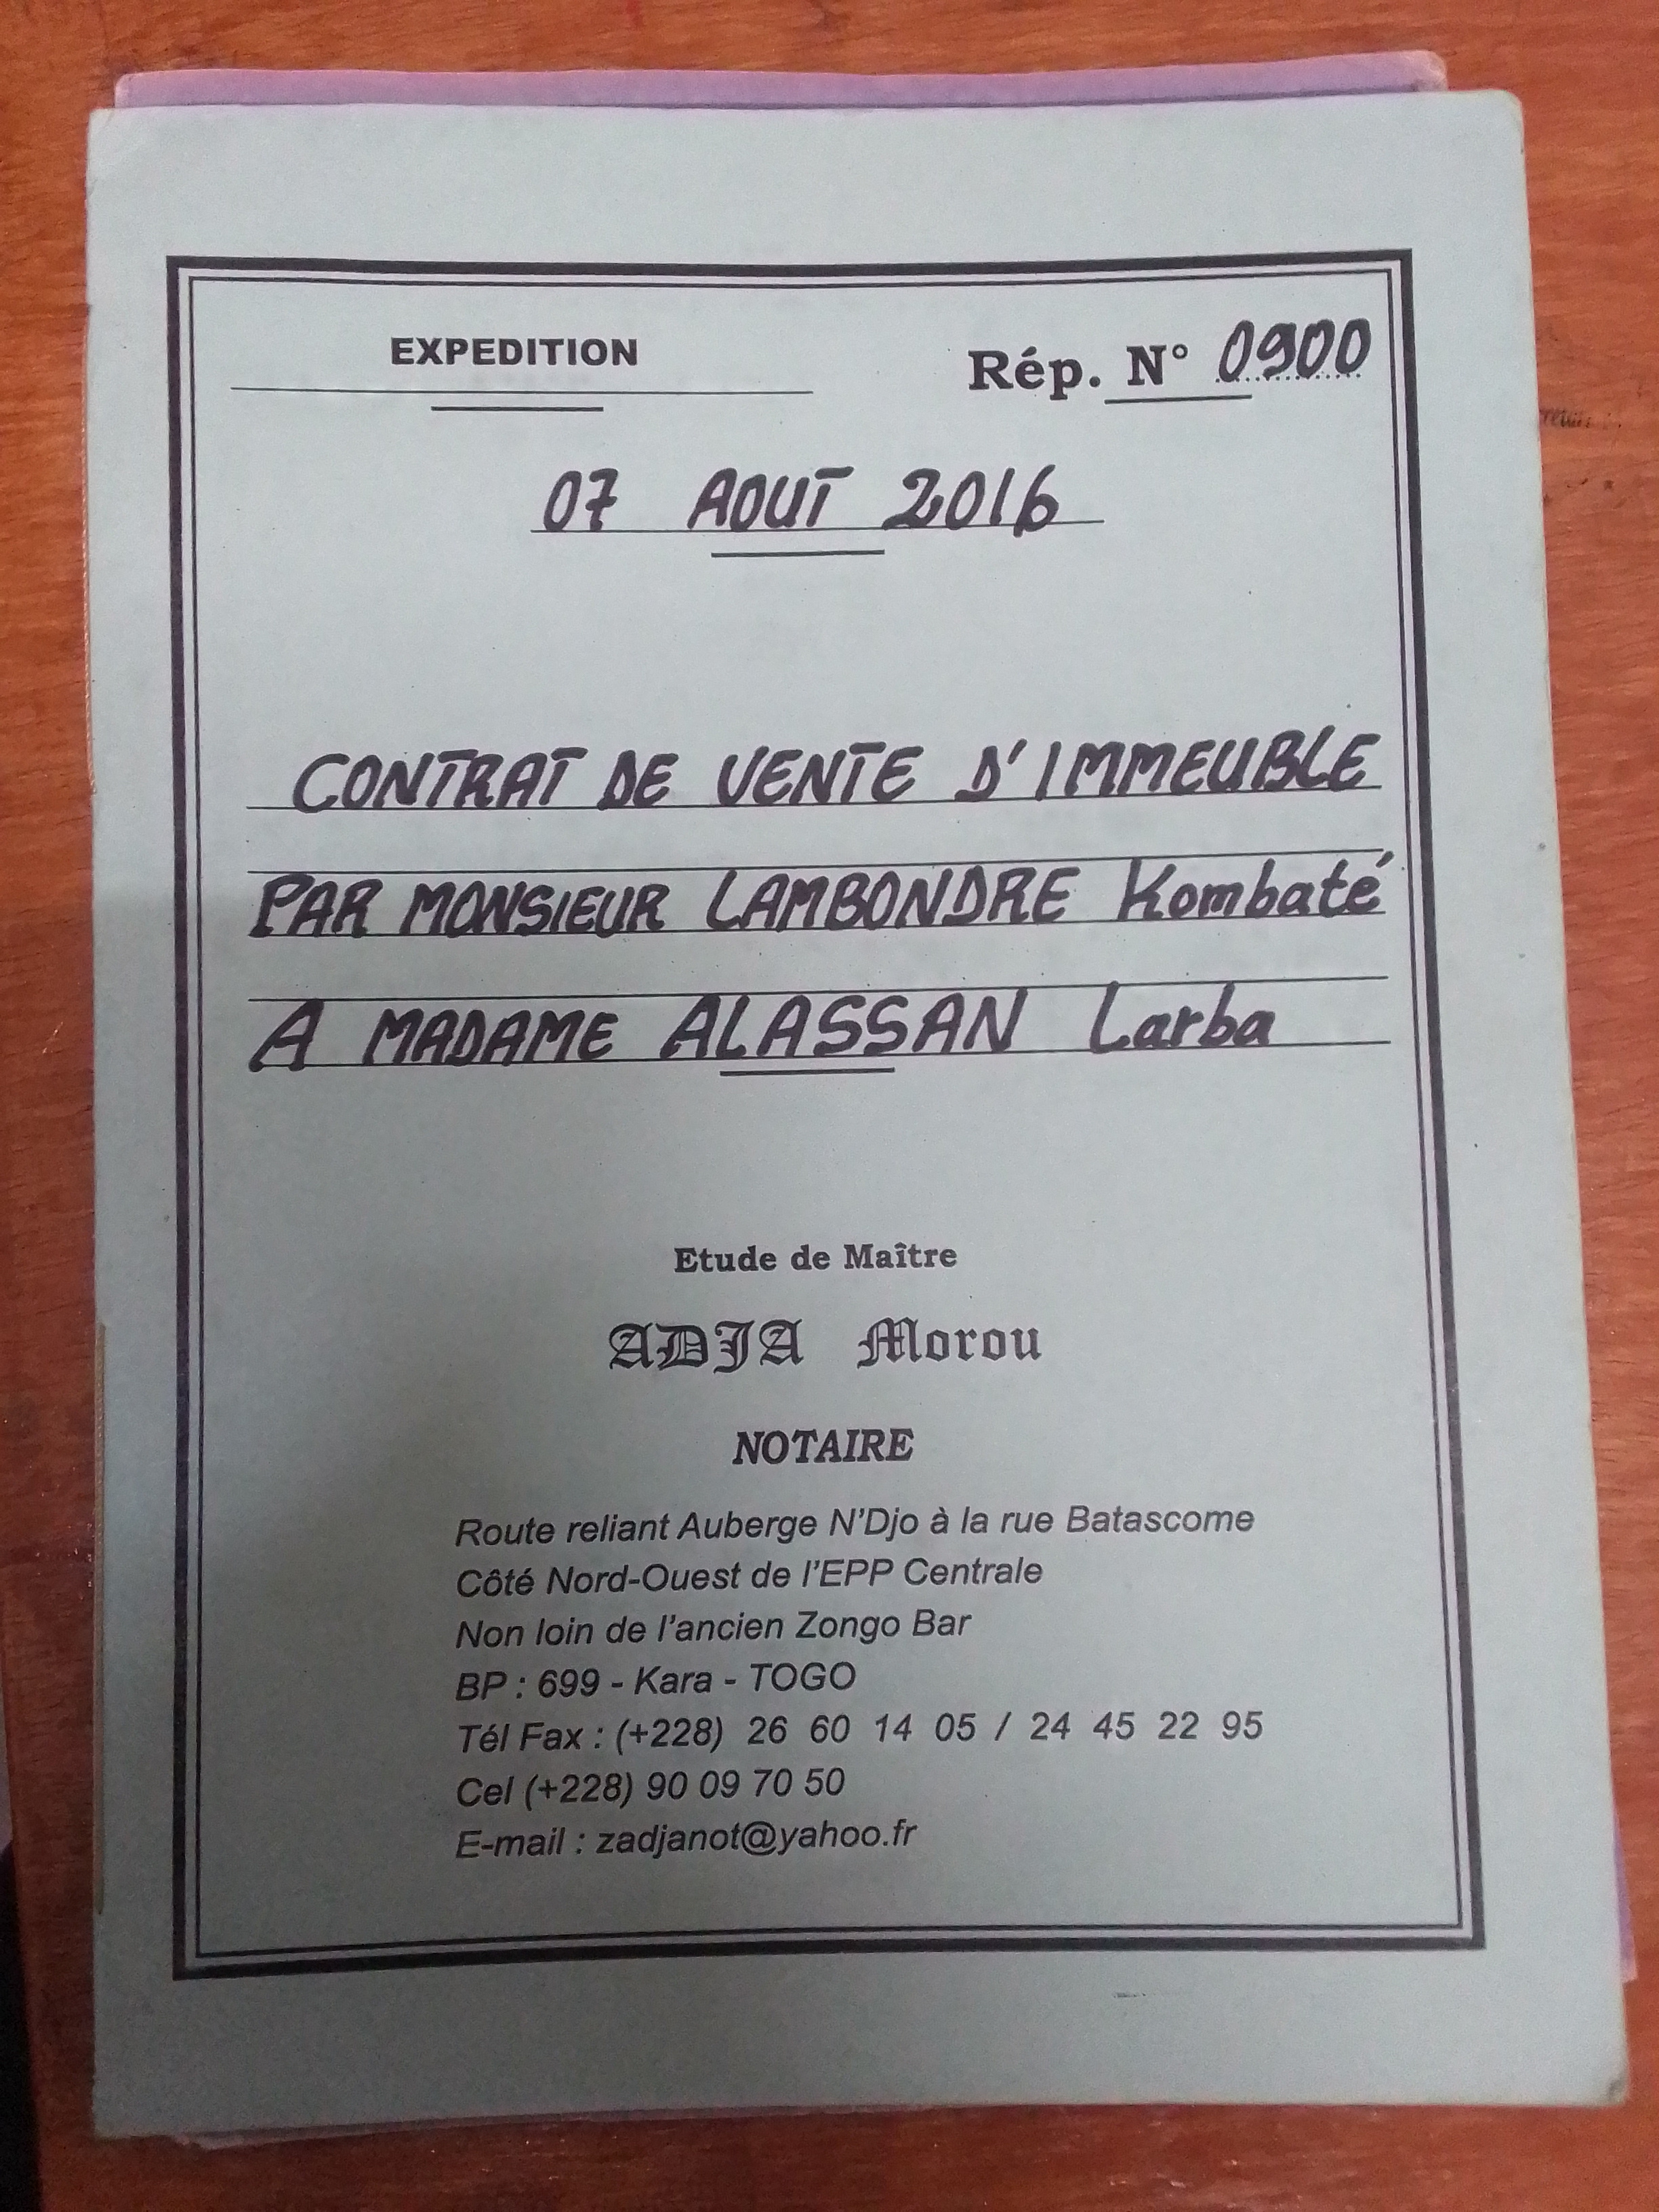 EXPEDITION
Rép. N° 0900
07 AOUT 2016
CONTRAT DE VENTE D'IMMEUBLE
PAR MONSIEUR LAMBONDRE Kombaté
A MADAME ALASSAN Larba
Etude de Maître
ADJA Morou
NOTAIRE
Route reliant Auberge N'Djo à la rue Batascome
Côté Nord-Ouest de l'EPP Centrale
Non loin de l'ancien Zongo Bar
BP : 699 - Kara - TOGO
Tél Fax : (+228) 26 60 14 05 / 24 45 22 95
Cel (+228) 90 09 70 50
E-mail : zadjanot@yahoo.fr